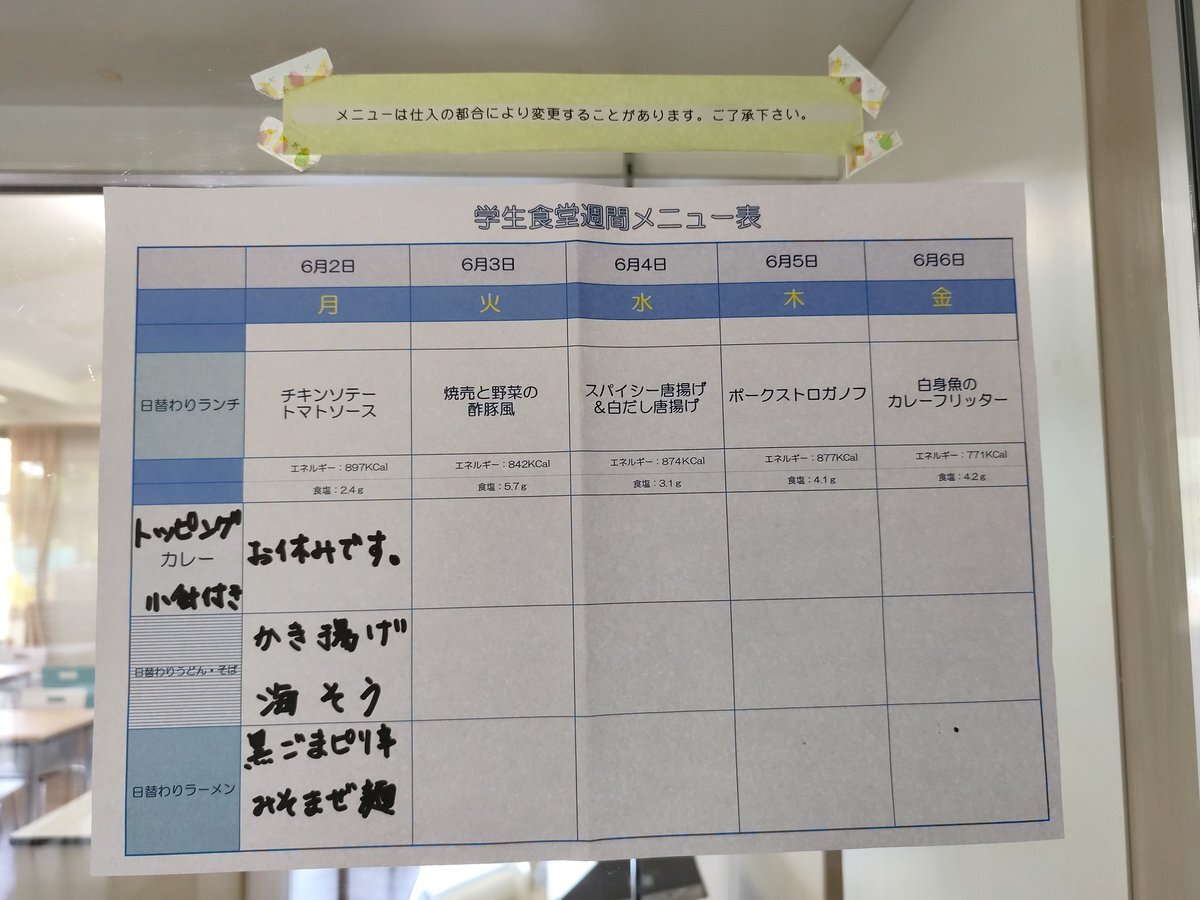 メニューは仕入の都合により変更することがあります。ご了承下さい。
学生食堂週間メニュー表
6月2日 6月3日 6月4日 6月5日 6月6日
月 火 水 木 金
日替わりランチ
チキンソテー
トマトソース
焼売と野菜の
酢豚風
スパイシー唐揚げ
&白だし唐揚げ
ポークストロガノフ
白身魚の
カレーフリッター
エネルギー:897KCal エネルギー:842KCal エネルギー:874KCal エネルギー:877KCal エネルギー:771KCal
食塩:2.4g 食塩:5.7g 食塩:3.1g 食塩:4.1g 食塩:4.2g
トッピング
カレー
小鉢付き
お休みです。
日替わりうどん・そば
かき揚げ
海そう
日替わりラーメン
黒ごまピリ辛
みそまぜ麺